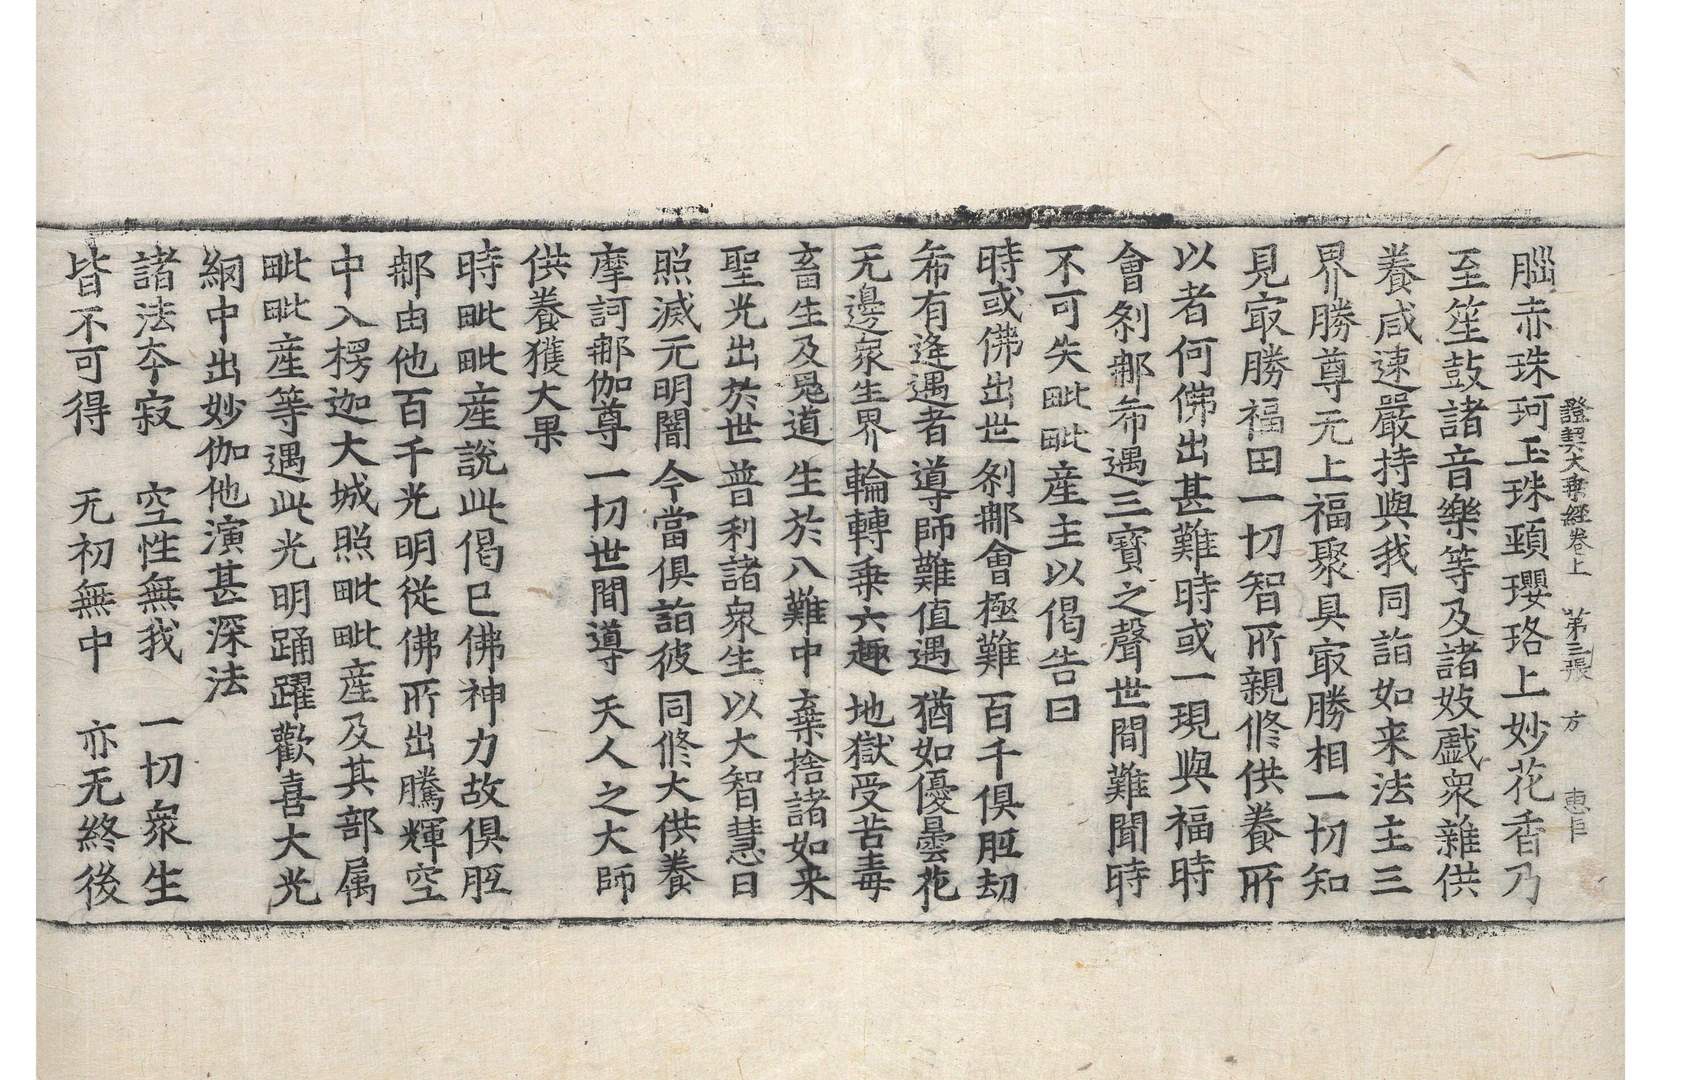 證契大乗経卷上　第三張　方　惠𠂤
腦赤珠珂玉珠頸瓔珞上妙花香乃
至笙鼓諸音樂等及諸妓戱衆雜供
養咸速嚴持與我同詣如来法主三
界勝尊无上福聚具㝡勝相一切知
見㝡勝福田一切智所親修供養所
以者何佛出甚難時或一現與福時
會刹那希遇三寶之聲世間難聞時
不可失毗毗産主以偈告曰
時或佛出世　刹那會極難　百千俱胝劫
希有逢遇者　導師難值遇　猶如優曇花
无邊衆生界　輪轉乗六趣　地獄受苦毒
畜生及鬼道　生於八難中　棄捨諸如来
聖光出於世　普利諸衆生　以大智慧日
照滅无明闇　今當俱詣彼　同修大供養
摩訶那伽尊　一切世間導　天人之大師
供養獲大果
時毗毗産說此偈已佛神力故俱胝
那由他百千光明從佛所出騰輝空
中入楞迦大城照毗毗産及其部属
毗毗産等遇此光明踊躍歡喜大光
網中出妙伽他演甚深法
諸法夲寂　空性無我　一切衆生
皆不可得　无初無中　亦无終後